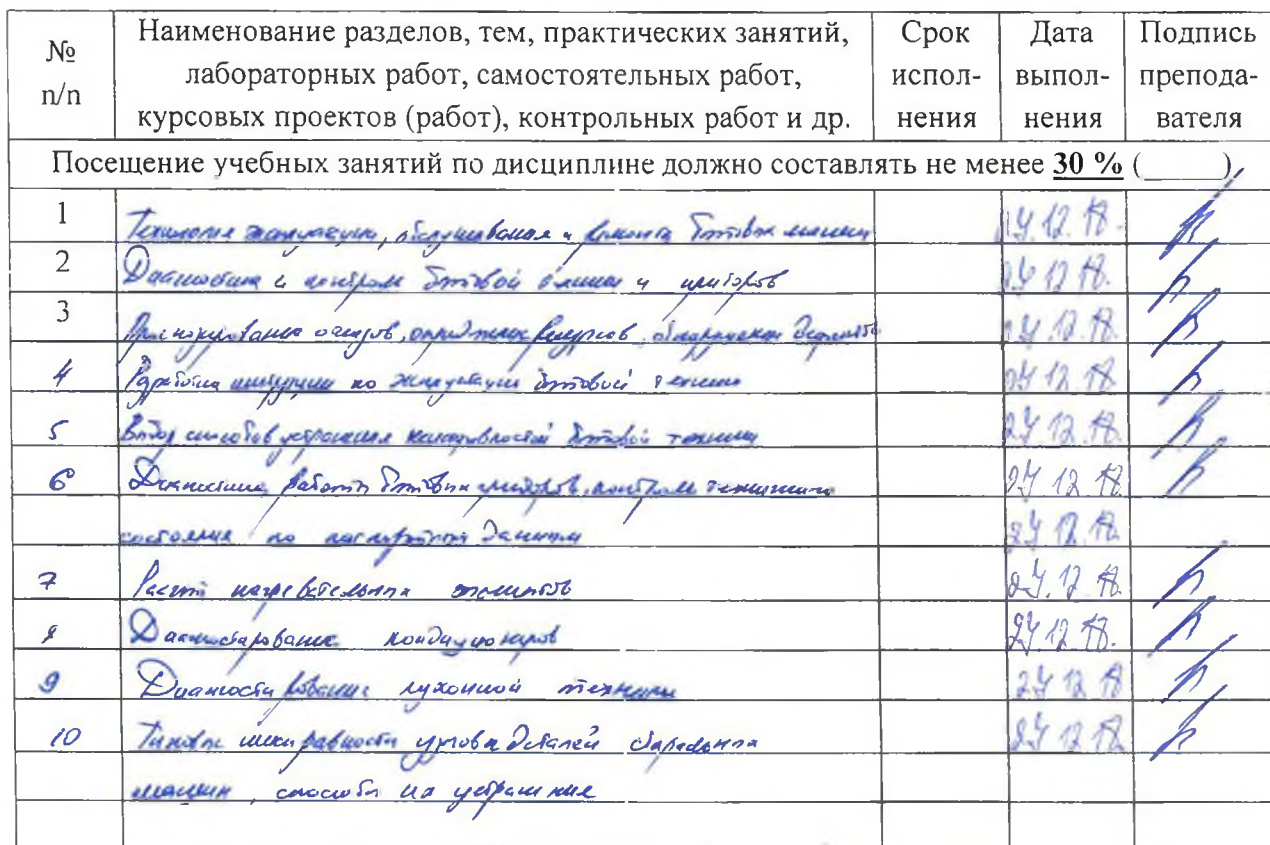 № п/п
Наименование разделов, тем, практических занятий,
лабораторных работ, самостоятельных работ,
курсовых проектов (работ), контрольных работ и др.
Срок испол-нения
Дата выпол-нения
Подпись препода-вателя
Посещение учебных занятий по дисциплине должно составлять не менее 30 % (______),
1 Технология эксплуатации, обслуживания и ремонта бытовых машин 24.12.18.
2 Диагностика и контроль бытовой техники и приборов 24.12.18.
3 Прогнозирование отказов, определение ресурсов, обнаружения дефектов 24.12.18.
4 Разработка инструкции по эксплуатации бытовой техники 24.12.18
5 Выбор способов устранения неисправностей бытовой техники 24.12.18.
6 Диагностика работы бытовых приборов, контроль технического 24.12.18
состояния по данным 24.12.18.
7 Расчет нагревательных элементов 24.12.18.
8 Диагностирование кондиционеров 24.12.18.
9 Диагностирование кухонной техники 24.12.18
10 Типовые неисправности узлов и деталей стиральных 24.12.18
машин, способы их устранения